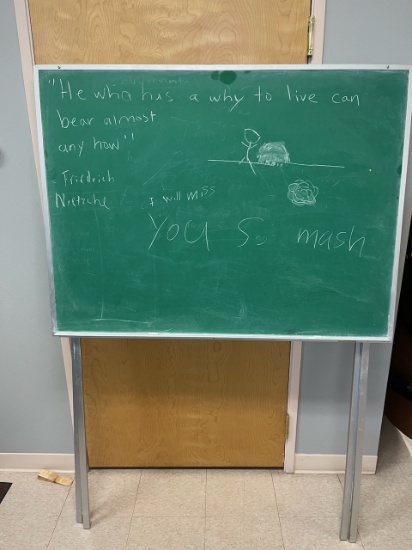 "He who has a why to live can
bear almost
any how"
- Friedrich
Nietzche
I will miss
YOU So mash